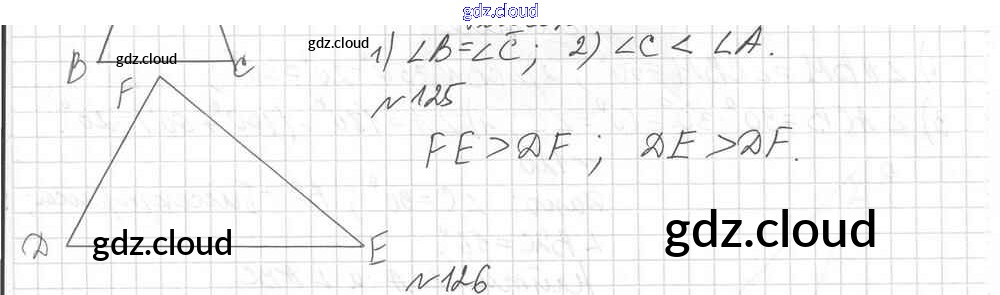 gdz.cloud
1) ∠B=∠C; 2) ∠C < ∠A.
gdz.cloud
gdz.cloud
B C
F
№125
FE > DF; DE > DF.
D E
gdz.cloud
gdz.cloud
№126